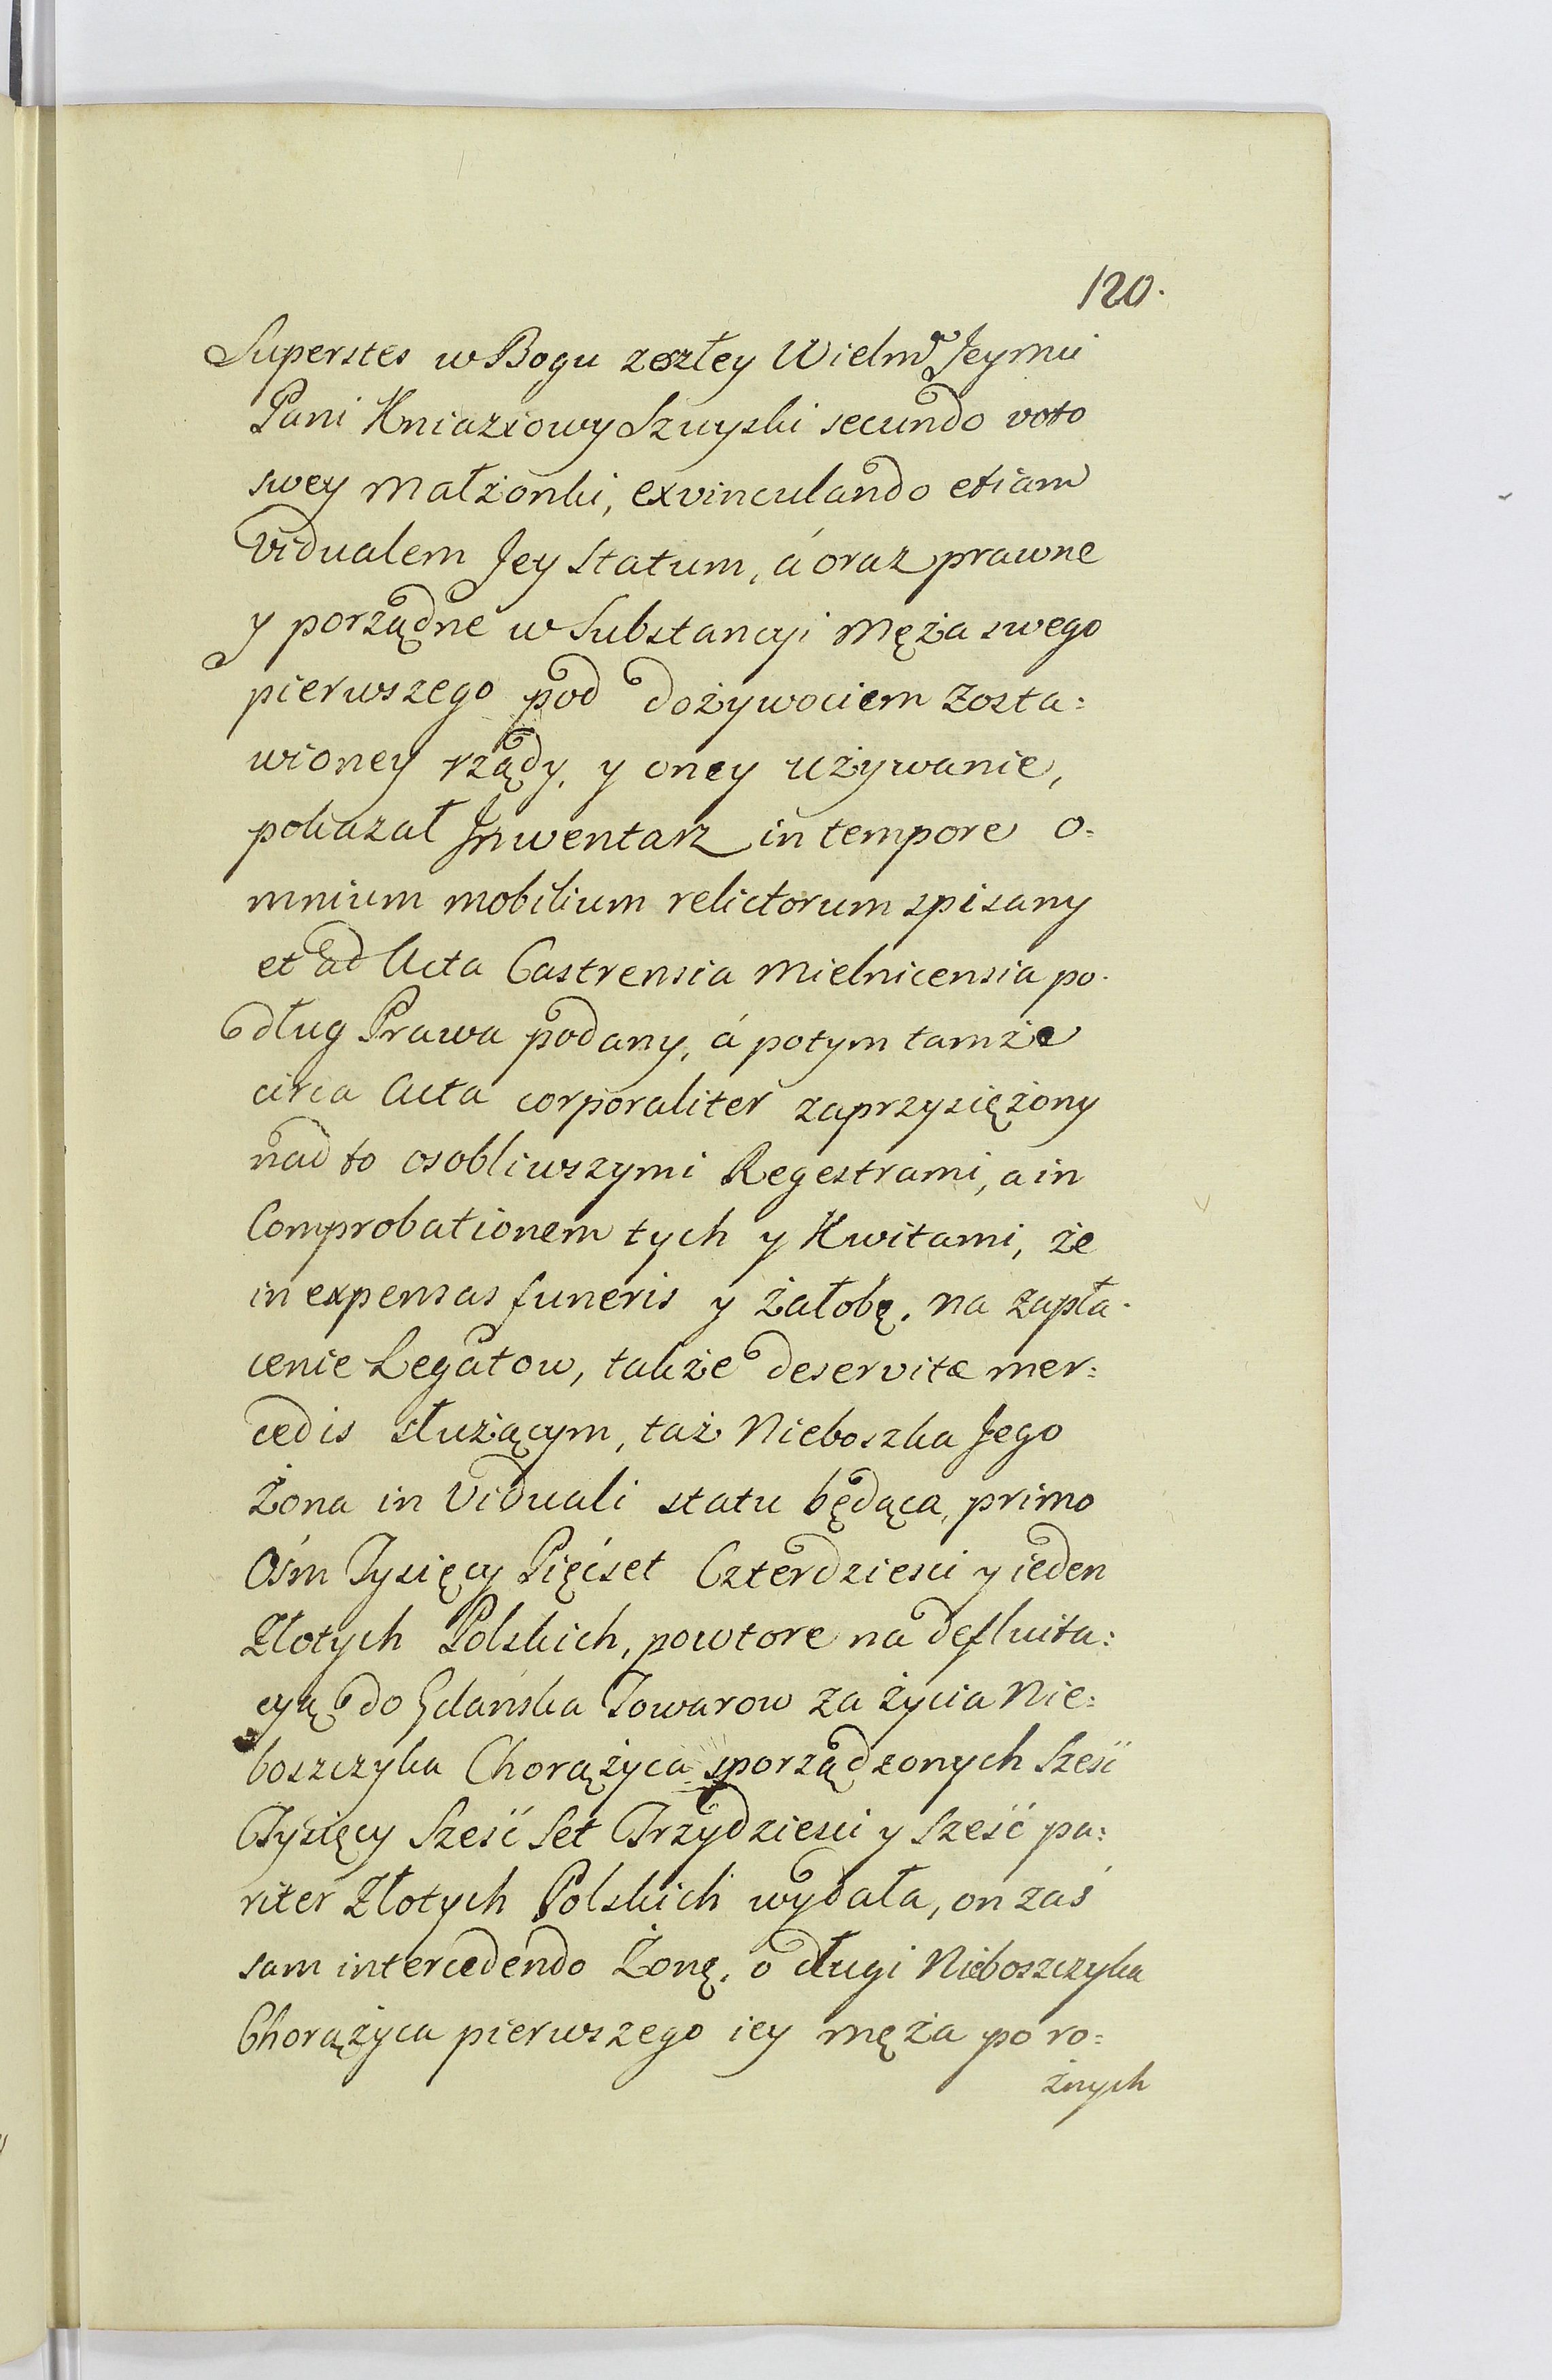 120.
Superstes w Bogu zeszłey Wielm Jeymci
Pani Kniaziowy Szuyski secundo voto
swey Małżonki, exvinculando etiam
vidualem Jey Statum, á oraz prawne
y porządne w Substancyi Męża swego
pierwszego pod dożywociem zosta:
wioney rządy, y oney używanie,
pokazał Jnwentarz in tempore o=
mnium mobilium relictorum spisany
et ad Acta Castrensia Mielnicensia po-
dług Prawa podany, á potym tamże
circa Acta corporaliter zaprzysiężony
nad to osobliwszymi Regestrami, a in
Comprobationem tych y Kwitami, że
in expensas funeris y żałobę, na zapła-
cenie Legatow, także deservitæ mer:
cedis służącym, taż Nieboszka Jego
Żona in Viduali statu będąca, primo
Ośm Tysięcy Pięćset Czterdziesci y ieden
Złotych Polskich, powtore na defluita:
cyą do Gdańska Towarow za życia Nie:
boszczyka Chorążyca sporządzonych Sześć
Tysięcy Sześć Set Trzydziesci y Sześć pa:
riter Złotych Polskich wydała, on zaś
sam intercedendo Żonę, o długi Nieboszczyka
Chorążyca pierwszego iey męża po ro=
żnych